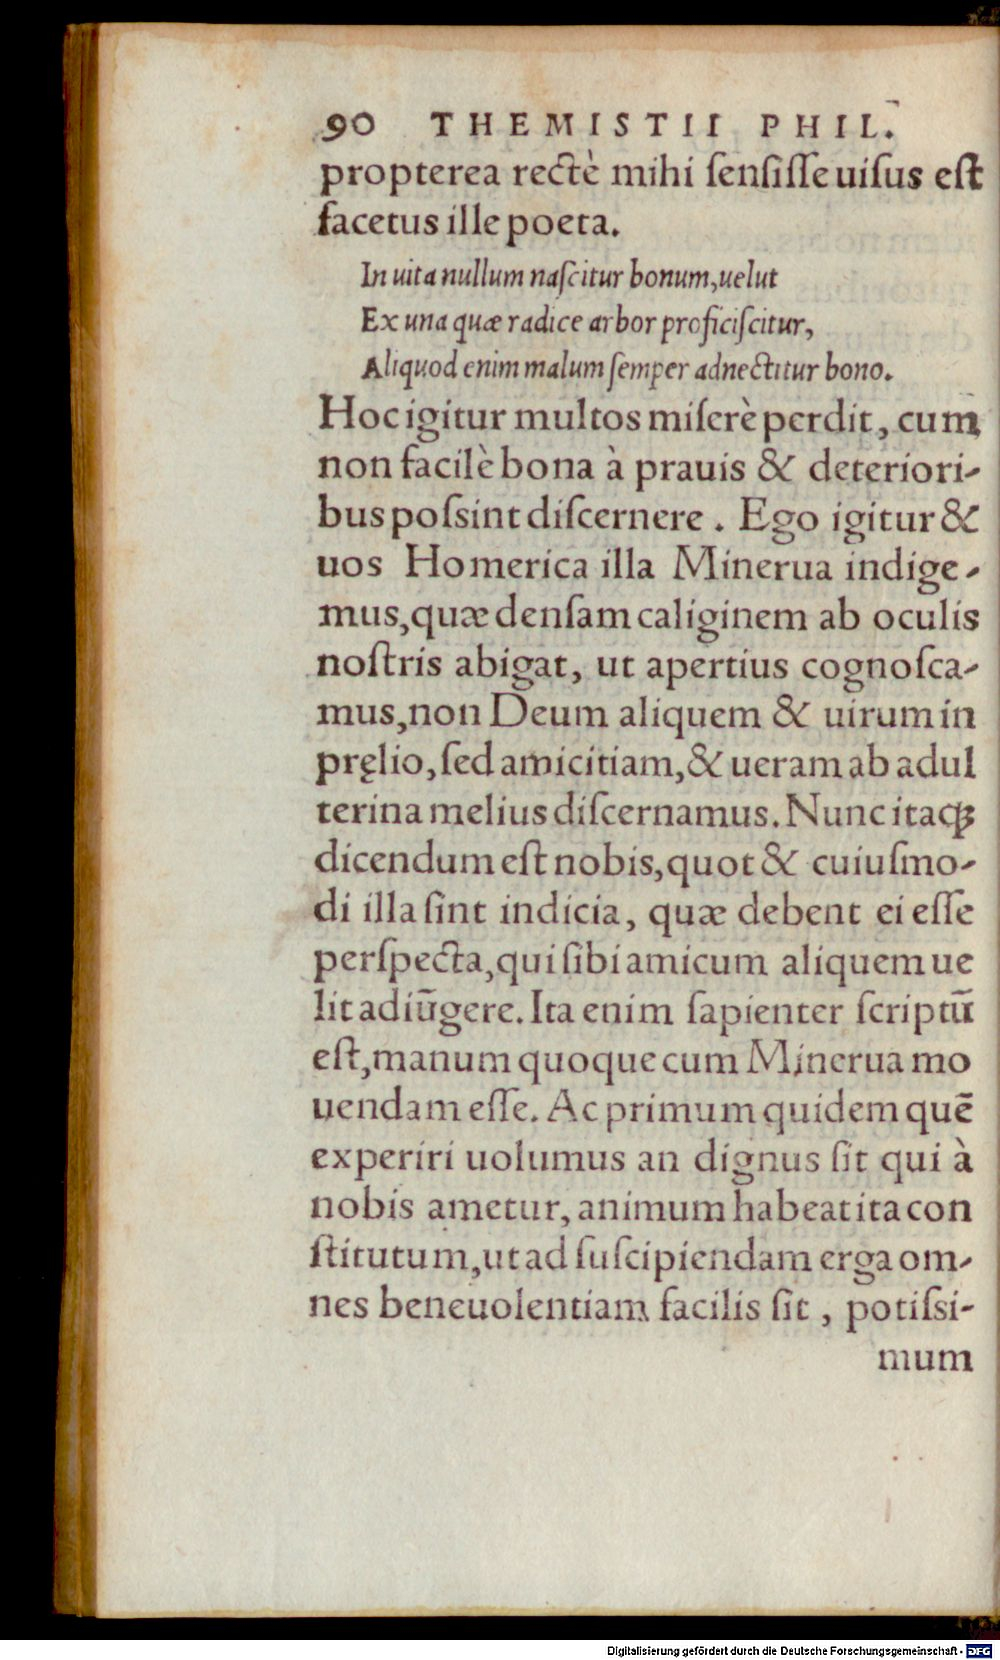 90 THEMISTII PHIL.
propterea rectè mihi ſenſiſſe uiſus eſt
facetus ille poeta.
In uita nullum naſcitur bonum, uelut
Ex una quæ radice arbor proficiſcitur,
Aliquod enim malum ſemper adnectitur bono.
Hoc igitur multos miſerè perdit, cum
non facilè bona à prauis & deteriori-
bus poſsint diſcernere. Ego igitur &
uos Homerica illa Minerua indige-
mus, quæ denſam caliginem ab oculis
noſtris abigat, ut apertius cognoſca-
mus, non Deum aliquem & uirum in
pręlio, ſed amicitiam, & ueram ab adul
terina melius diſcernamus. Nunc itaqꝫ
dicendum eſt nobis, quot & cuiuſmo-
di illa ſint indicia, quæ debent ei eſſe
perſpecta, qui ſibi amicum aliquem ue
lit adiūgere. Ita enim ſapienter ſcriptū
eſt, manum quoque cum Minerua mo
uendam eſſe. Ac primum quidem quē
experiri uolumus an dignus ſit qui à
nobis ametur, animum habeat ita con
ſtitutum, ut ad ſuſcipiendam erga om-
nes beneuolentiam facilis ſit, potiſsi-
mum
Digitalisierung gefördert durch die Deutsche Forschungsgemeinschaft - DFG